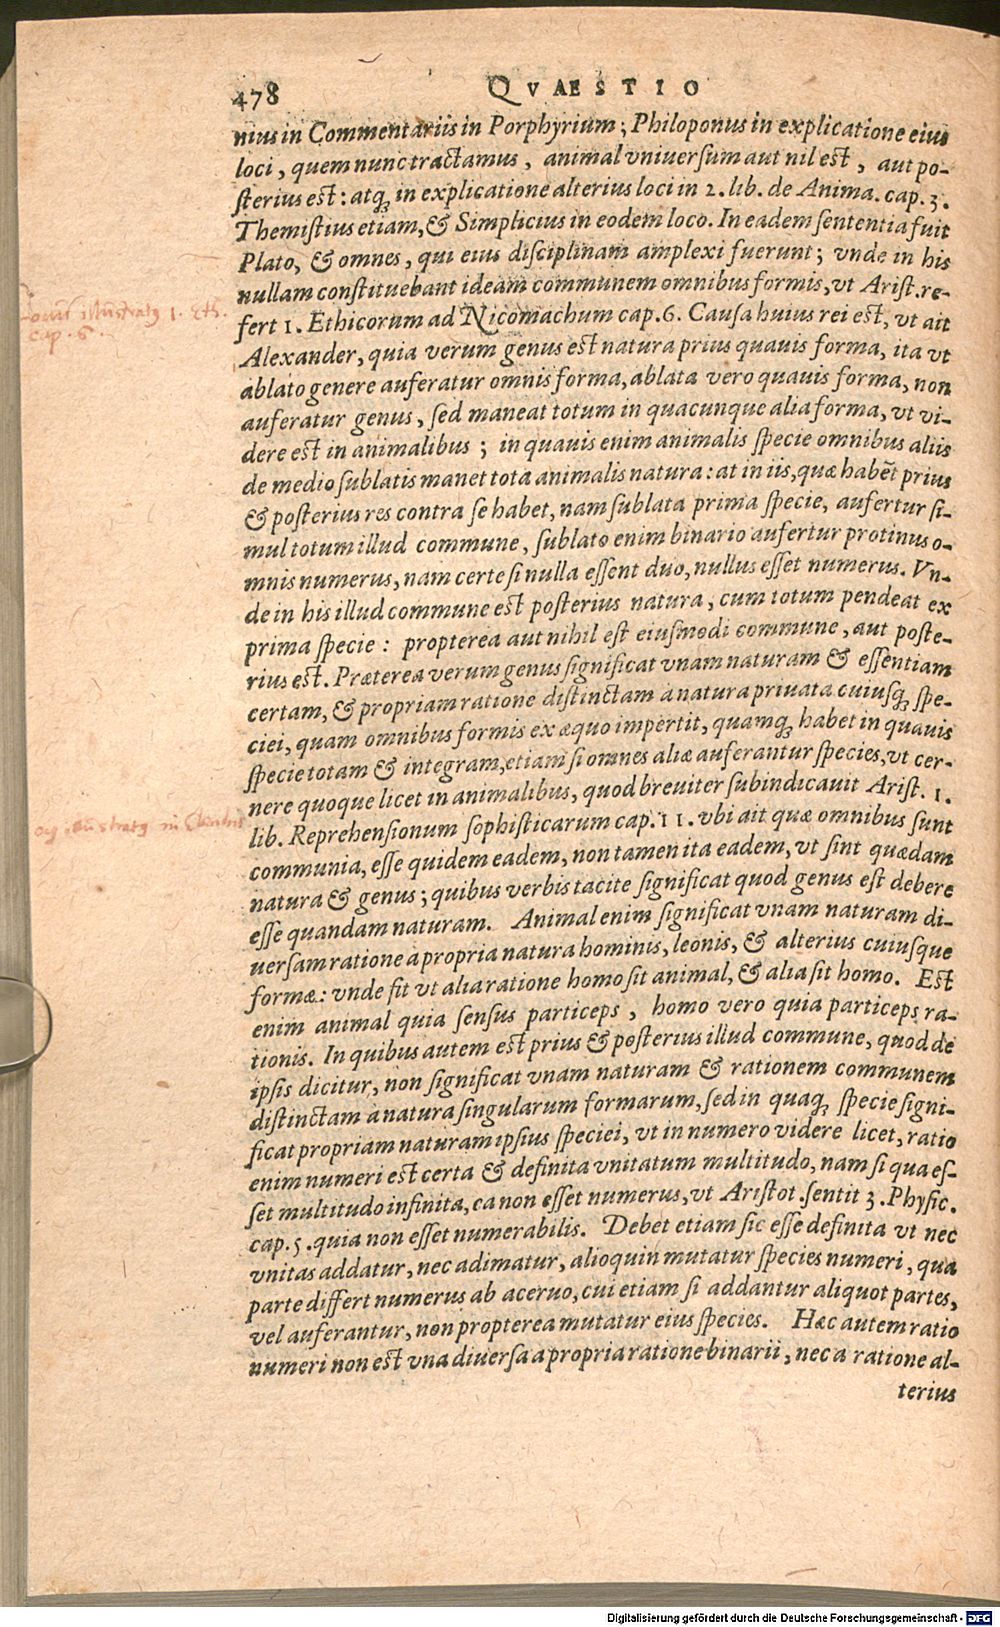 478 QVÆSTIO
nius in Commentariis in Porphyrium; Philoponus in explicatione eius
loci, quem nunc tractamus, animal vniuersum aut nil est, aut po-
sterius est: atq; in explicatione alterius loci in 2. lib. de Anima. cap. 3.
Themistius etiam, & Simplicius in eodem loco. In eadem sententia fuit
Plato, & omnes, qui eius disciplinam amplexi fuerunt; vnde in his
nullam constituebant ideam communem omnibus formis, vt Arist. re-
fert 1. Ethicorum ad Nicomachum cap. 6. Causa huius rei est, vt ait
Alexander, quia verum genus est natura prius quauis forma, ita vt
ablato genere auferatur omnis forma, ablata vero quauis forma, non
auferatur genus, sed maneat totum in quacunque alia forma, vt vi-
dere est in animalibus; in quauis enim animalis specie omnibus aliis
de medio sublatis manet tota animalis natura: at in iis, quæ habẽt prius
& posterius res contra se habet, nam sublata prima specie, aufertur si-
mul totum illud commune, sublato enim binario aufertur protinus o-
mnis numerus, nam certe si nulla essent duo, nullus esset numerus. Vn-
de in his illud commune est posterius natura, cum totum pendeat ex
prima specie: propterea aut nihil est eiusmodi commune, aut poste-
rius est. Præterea verum genus significat vnam naturam & essentiam
certam, & propriam ratione distinctam à natura priuata cuiusq; spe-
ciei, quam omnibus formis ex æquo impertit, quamq; habet in quauis
specie totam & integram, etiam si omnes aliæ auferantur species, vt cer-
nere quoque licet in animalibus, quod breuiter subindicauit Arist. 1.
lib. Reprehensionum sophisticarum cap. 11. vbi ait quæ omnibus sunt
communia, esse quidem eadem, non tamen ita eadem, vt sint quædam
natura & genus; quibus verbis tacite significat quod genus est debere
esse quandam naturam. Animal enim significat vnam naturam di-
uersam ratione a propria natura hominis, leonis, & alterius cuiusque
formæ: vnde fit vt alia ratione homo sit animal, & alia sit homo. Est
enim animal quia sensus particeps, homo vero quia particeps ra-
tionis. In quibus autem est prius & posterius illud commune, quod de
ipsis dicitur, non significat vnam naturam & rationem communem
distinctam a natura singularum formarum, sed in quaq; specie signi-
ficat propriam naturam ipsius speciei, vt in numero videre licet, ratio
enim numeri est certa & definita vnitatum multitudo, nam si qua es-
set multitudo infinita, ea non esset numerus, vt Aristot. sentit 3. Physic.
cap. 5. quia non esset numerabilis. Debet etiam sic esse definita vt nec
vnitas addatur, nec adimatur, alioquin mutatur species numeri, qua
parte differt numerus ab aceruo, cui etiam si addantur aliquot partes,
vel auferantur, non propterea mutatur eius species. Hæc autem ratio
numeri non est vna diuersa a propria ratione binarii, nec a ratione al-
terius
1. Eth.
cap. 6
Digitalisierung gefördert durch die Deutsche Forschungsgemeinschaft - DFG